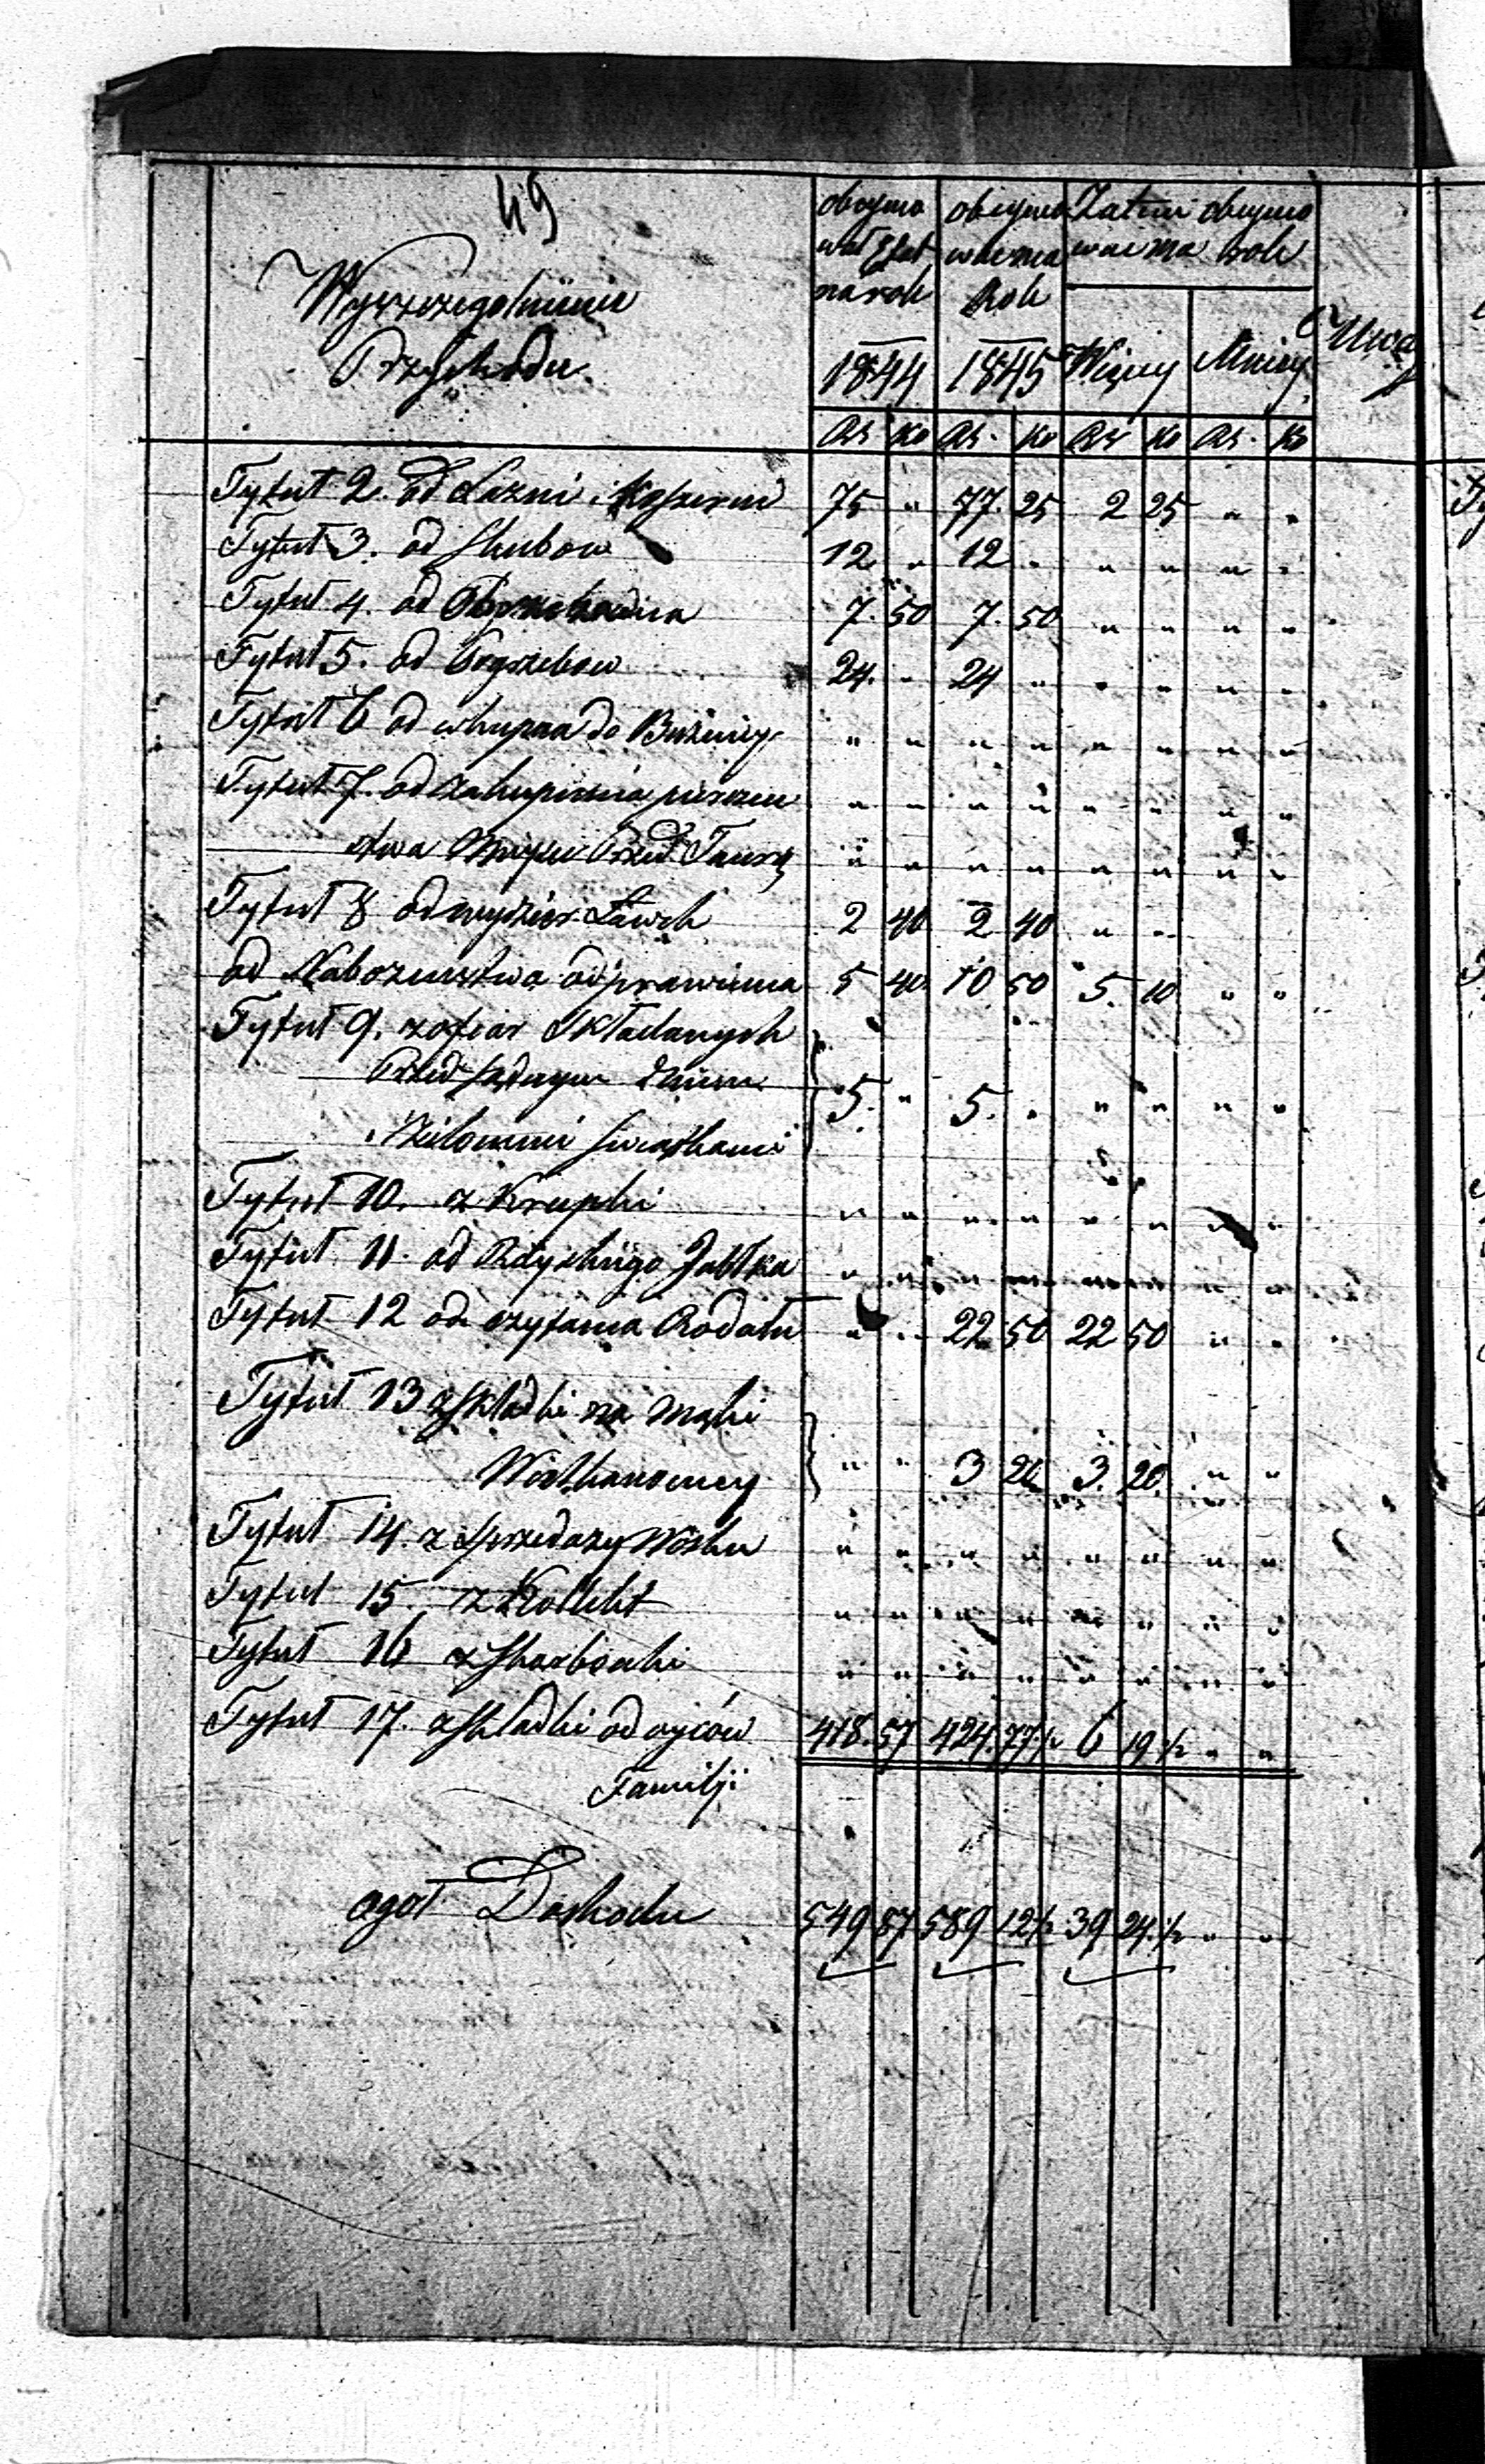 49
Wyszczegolnienie
Przychodu.
obeymo
wał Etat
na rok
1844
obeymo
wać ma
Rok
1845
Zatem obeymo
wać ma rok
Więcey
Mniey
Rs Ko Rs. Ko Rs Ko Rs. Ko
Tytuł 2. od Łazni i 75 " 77. 25 2 25 " "
Tytuł 3. od Slubow 12 " 12 " " " " "
Tytuł 4. od Obrzezania 7. 50 7. 50 " " " "
Tytuł 5. od Pogrzebow 24. " 24 " " " " "
Tytuł 6 od wkupna do Bużnicy " " " " " " " "
Tytuł 7. od zakupienia pierszen " " " " " " " "
stwa Przed Taurą " " " " " " " "
Tytuł 8 od Ławek 2 40 2 40 " "
od Nabozenstwa odprawienia 5 40 10 50 5. 10 " "
Tytuł 9. z ofiar Składanych
Przed sądnym dniem
Swiątkami 5. " 5. " " " " "
Tytuł 10. z Krupki " " " " " " " "
Tytuł 11. od Rayskiego Jabłka " " " " " " " "
Tytuł 12 od czytania Rodału " " 22 50 22 50 " "
Tytuł 13 z składki na Mąki
Wielkanocney " " 3 20 3. 20 " "
Tytuł 14. z sprzedazy Wosku " " " " " " " "
Tytuł 15. z Kollekt " " " " " " " "
Tytuł 16 z skarbonki " " " " " " " "
Tytuł 17. z składki od oyców 418. 57 424. 77½ 6 19½ " "
Familji
ogół Dochodu 549 87 589 12½ 39 24½ " "